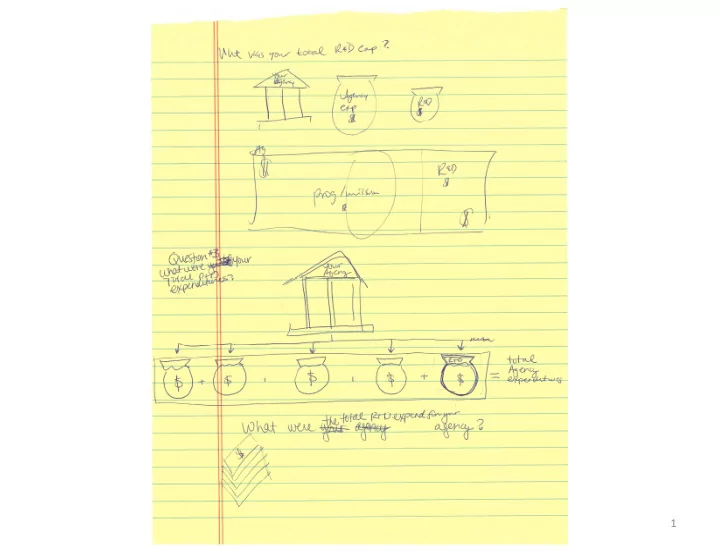 What was your total R&D exp?
Your
Agency
Agency
exp
$
R&D
$
$
R&D
$
prog/mission
$
$
Question #3
What were your
Total R+D
expenditures?
Your
Agency
$ + $ , $ , $ + $ = total
Agency
expenditures
the total R+D expend for your
What were agency?
$
1